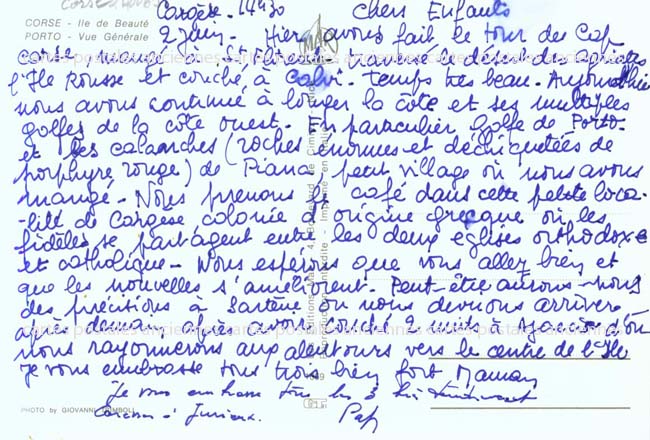 Cargèse. 14h30 Chers Enfants
CORSE - Ile de Beauté
PORTO - Vue Générale
2 Juin. Hier avons fait le tour du Cap
corse, déjeuné à St Florent, traversé le désert des Agriates
l'Ile Rousse et couché à Calvi. temps très beau. Aujourd'hui
nous avons continué à longer la côte et ses multiples
golfes de la côte ouest. En particulier golfe de Porto.
et les calanches (roches énormes et déchiquetées de
porphyre rouge) de Piana, petit village où nous avons
mangé. Nous prenons le café dans cette petite loca-
-lité de Cargèse colonie d'origine grecque où les
fidèles se partagent entre les deux églises orthodoxe
et catholique. Nous espérons que vous allez bien et
que les nouvelles s'améliorent. Peut-être aurons-nous
des précisions à Sartène où nous devrions arriver
après demain après avoir couché 2 nuits à Ajaccio d'où
nous rayonnerons aux alentours vers le centre de l'Ile
Je vous embrasse tous trois bien fort Maman
Je vous embrasse tous les 3
Pap
PHOTO by GIOVANNI